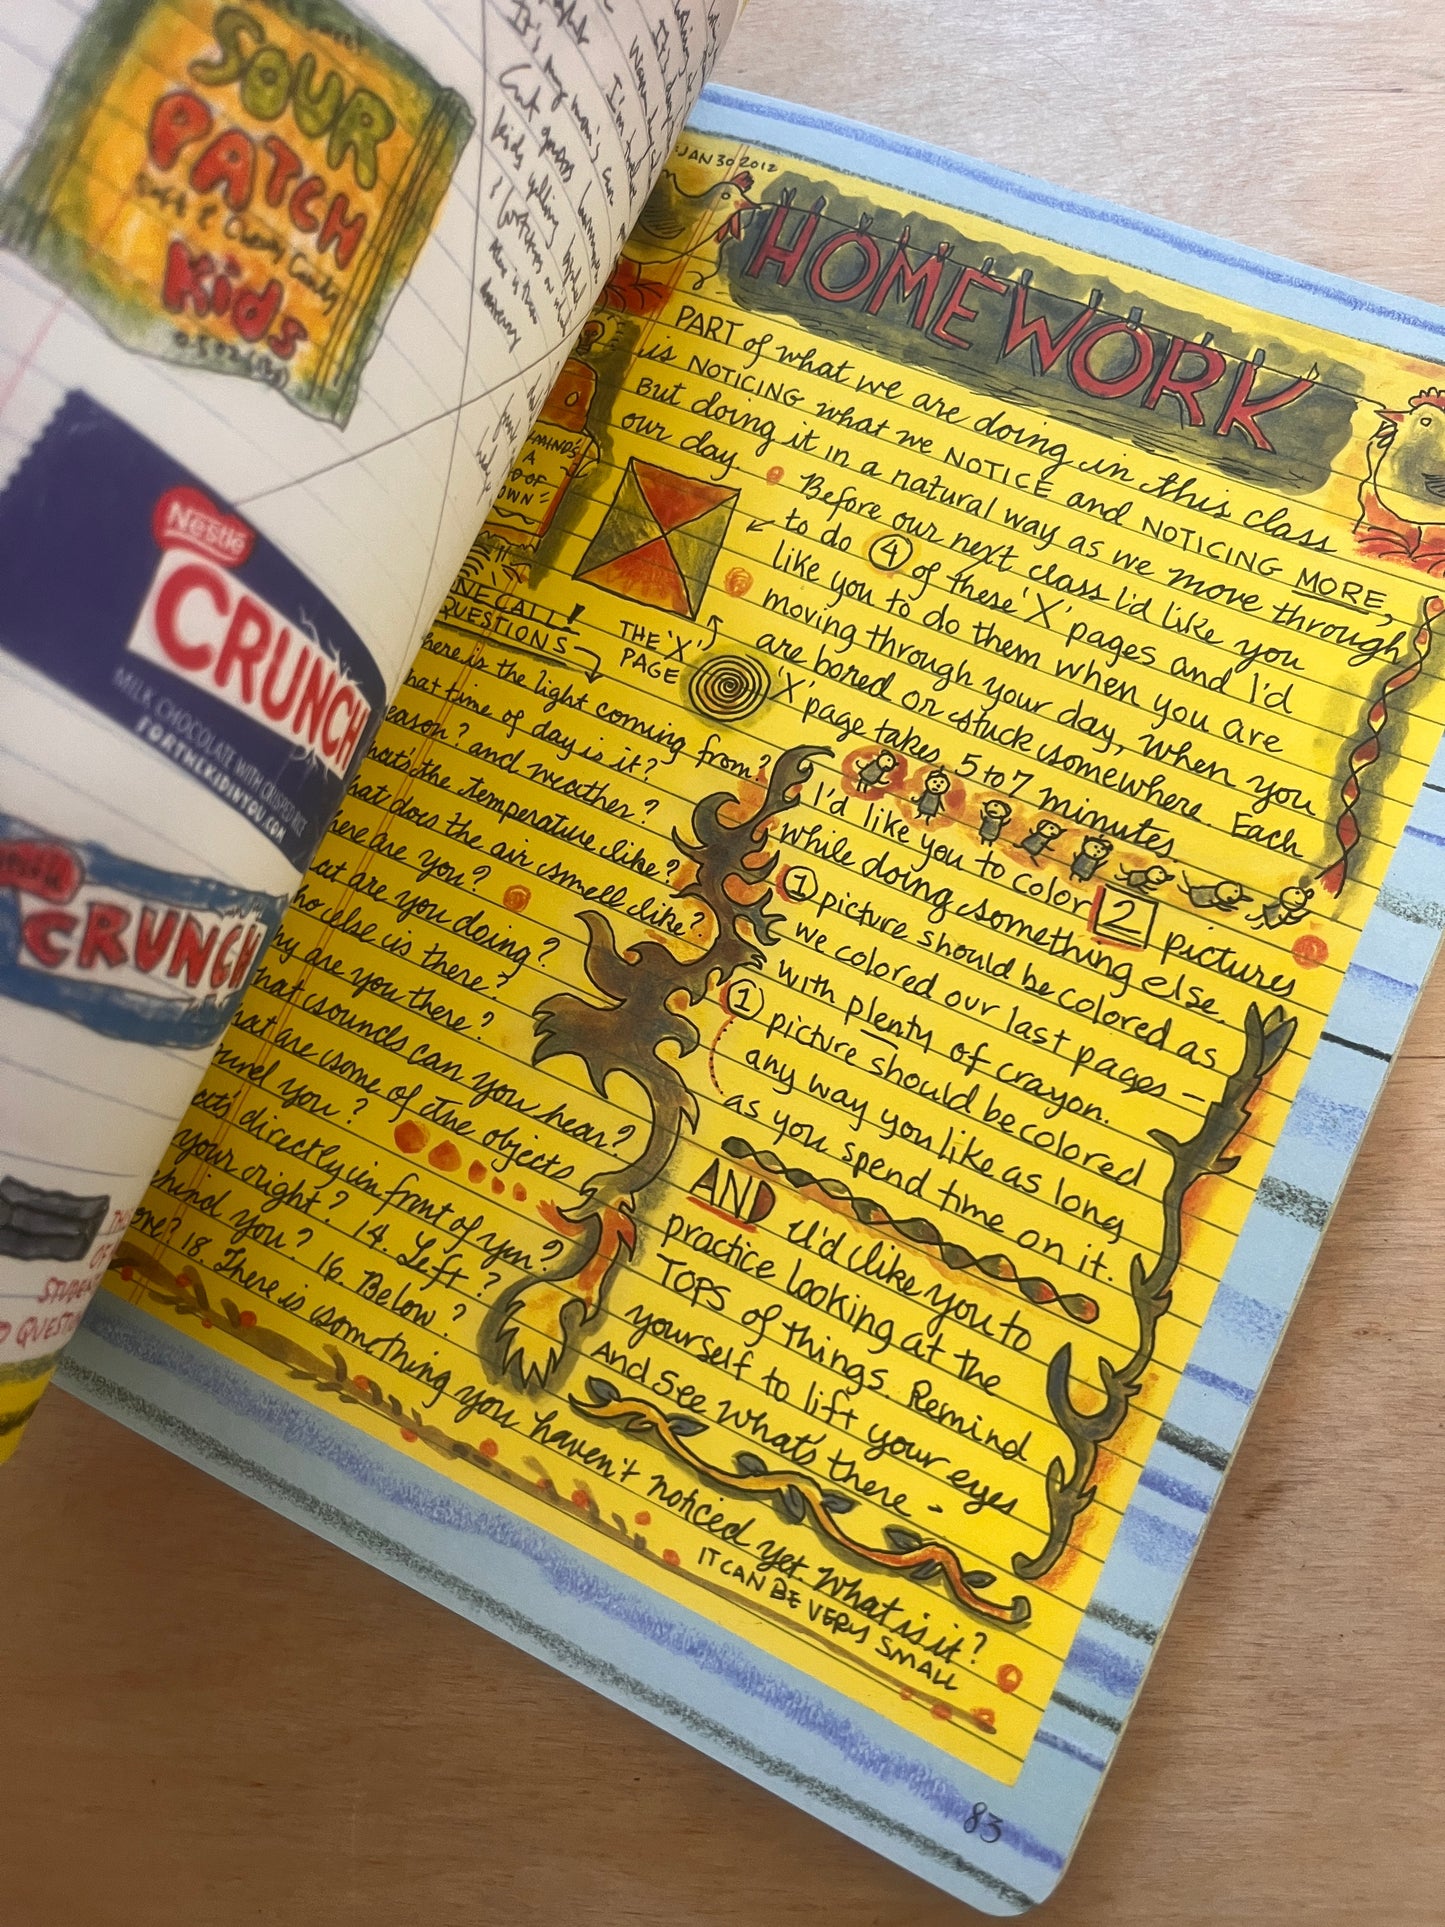 SOUR
PATCH
Kids
Soft & Chewy Candy
Nestle
CRUNCH
MILK CHOCOLATE WITH CRISPED RICE
FORTHEKIDINYOU.COM
CRUNCH
OF
It's my mom's
Cut grass
kids yelling
JAN 30 2012
HOMEWORK
PART of what we are doing in this class
is NOTICING what we NOTICE and NOTICING MORE,
But doing it in a natural way as we move through
our day
Before our next class I'd like you
to do 4 of these 'X' pages and I'd
like you to do them when you are
moving through your day, when you
are bored or stuck somewhere. Each
'X' page takes 5 to 7 minutes.
THE 'X'
PAGE
I'd like you to color 2 pictures
while doing something else.
1 picture should be colored as
we colored our last pages –
with plenty of crayon.
1 picture should be colored
any way you like as long
as you spend time on it.
AND I'd like you to
practice looking at the
TOPS of things. Remind
yourself to lift your eyes
AND See what's there -
A
OWN"
QUESTIONS
is the light coming from?
time of day is it?
and weather?
the temperature like?
does the air smell like?
are you?
are you doing?
else is there?
are you there?
sounds can you hear?
are some of the objects
you?
directly in front of you?
your right? 14. Left?
you? 16. Below?
18. There is something you haven't noticed yet what is it?
IT CAN BE VERY SMALL
83